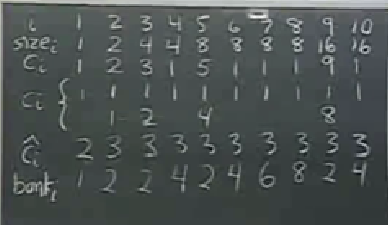 i 1 2 3 4 5 6 7 8 9 10
sizeᵢ 1 2 4 4 8 8 8 8 16 16
cᵢ 1 2 3 1 5 1 1 1 9 1
cᵢ { 1 1 1 1 1 1 1 1 1 1
1 2 4 8
ĉᵢ 2 3 3 3 3 3 3 3 3 3
bankᵢ 1 2 2 4 2 4 6 8 2 4